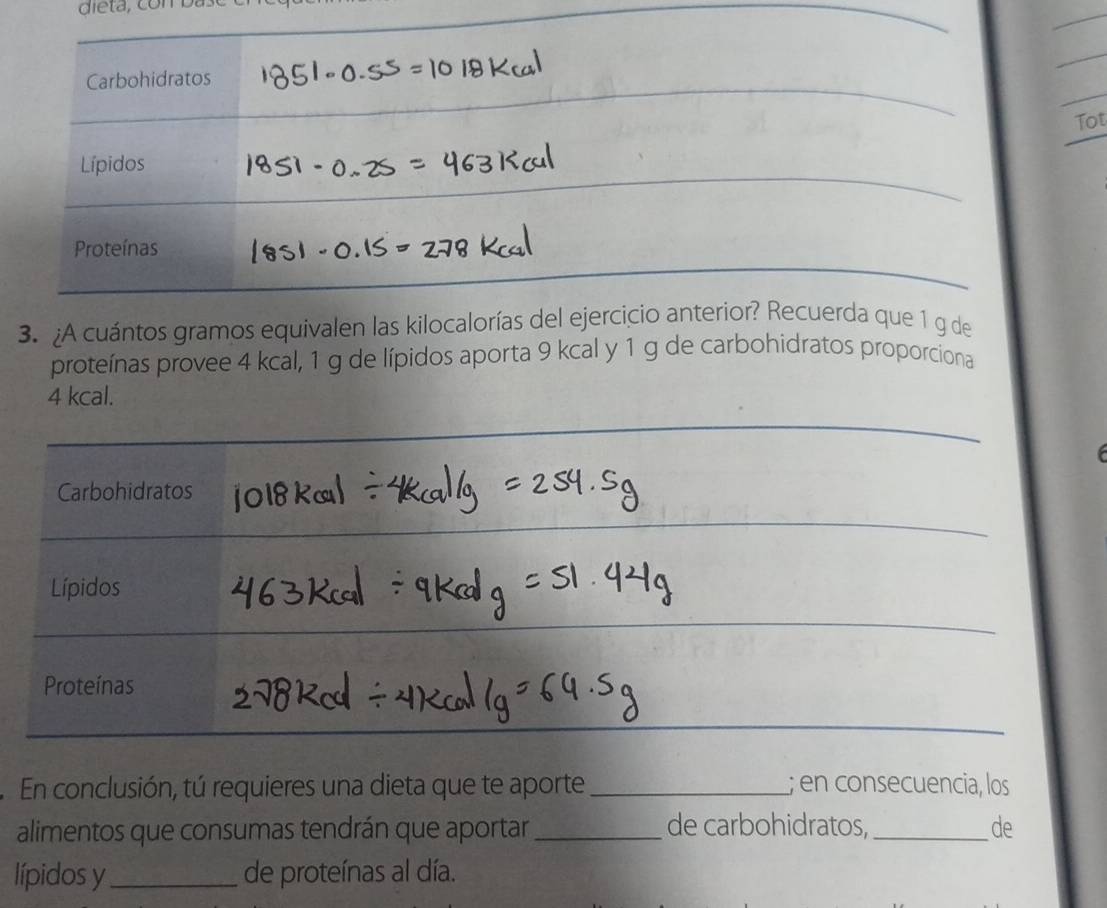 dieta, con
Carbohidratos 1851·0.55 = 1018 Kcal
Tot
Lípidos 1851·0.25 = 463 Kcal
Proteínas 1851·0.15 = 278 Kcal
3. ¿A cuántos gramos equivalen las kilocalorías del ejercicio anterior? Recuerda que 1 g de
proteínas provee 4 kcal, 1 g de lípidos aporta 9 kcal y 1 g de carbohidratos proporciona
4 kcal.
Carbohidratos 1018 kcal ÷ 4kcal/g = 254.5g
Lípidos 463 Kcal ÷ 9Kcal g = 51.44g
Proteínas 278 Kcal ÷ 4Kcal/g = 69.5g
. En conclusión, tú requieres una dieta que te aporte ____________; en consecuencia, los
alimentos que consumas tendrán que aportar ________ de carbohidratos, ________ de
lípidos y ________ de proteínas al día.